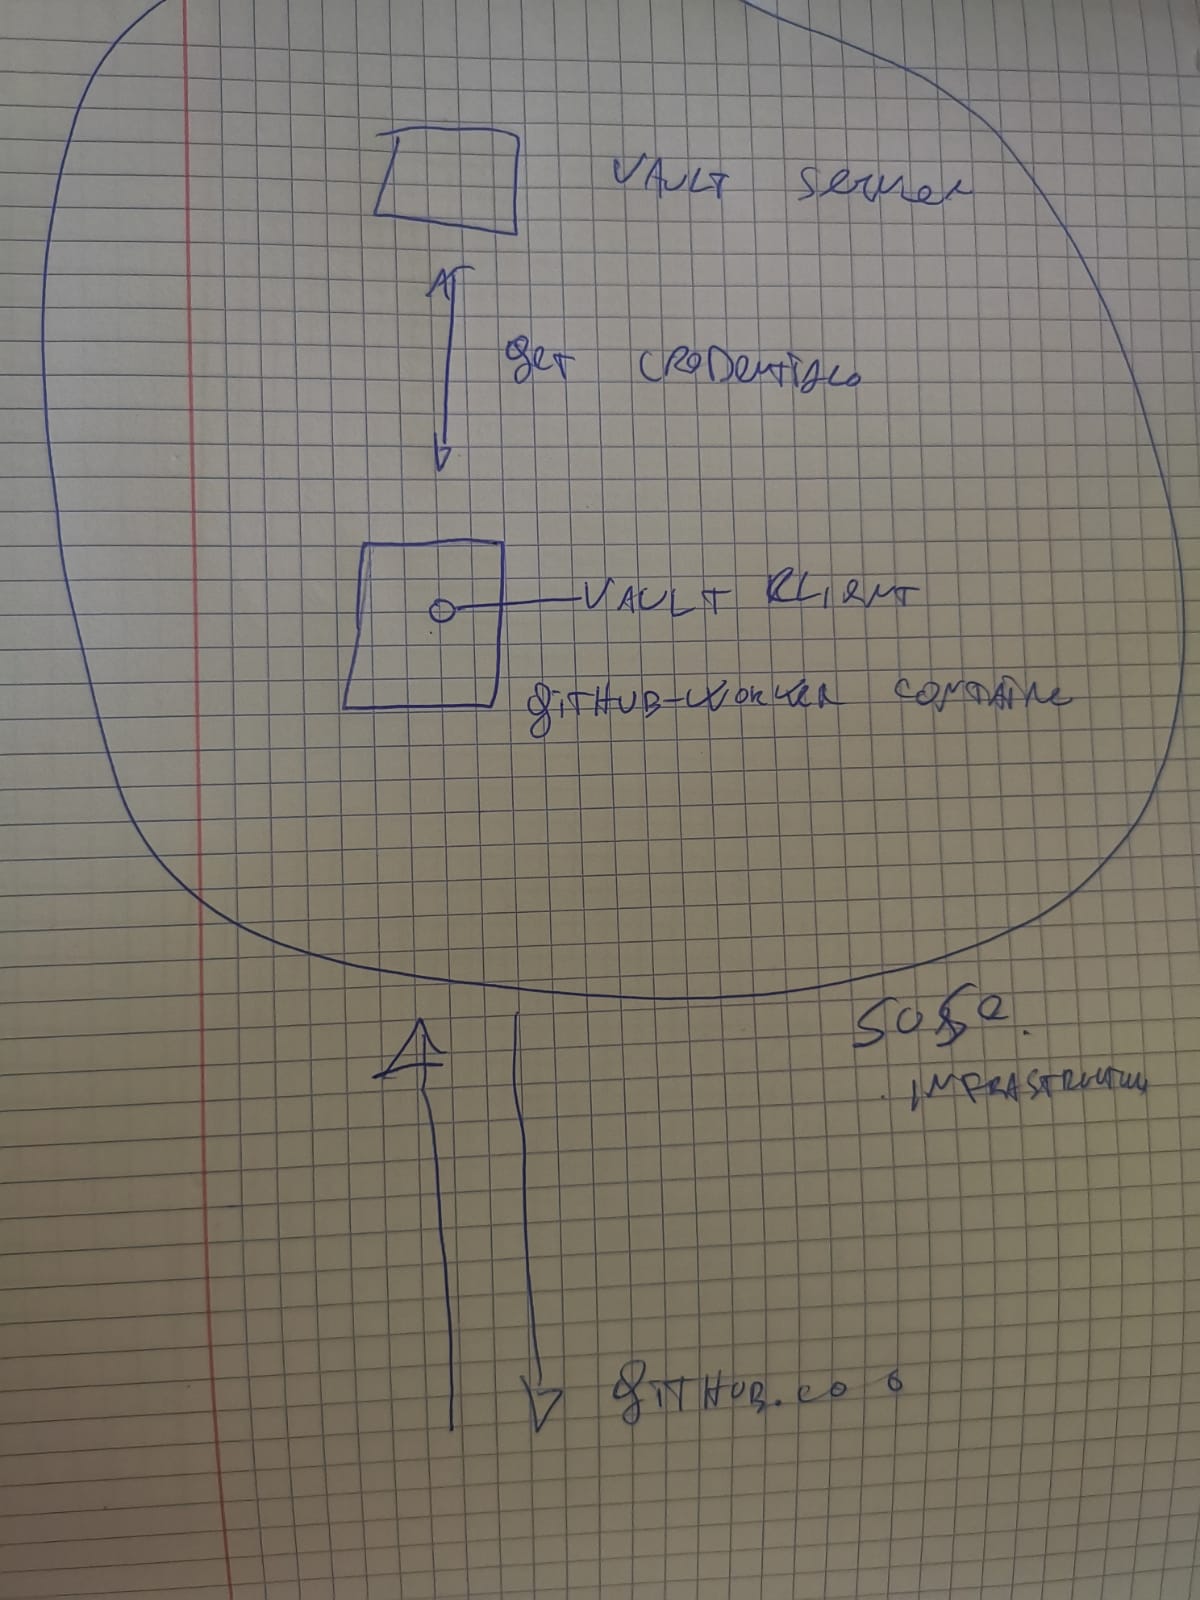 VAULT server
get CRADentials
VAULT CLIENT
gitHUB-WORKER CONTAINE
INFRASTRUCTURE
gitHUB.co